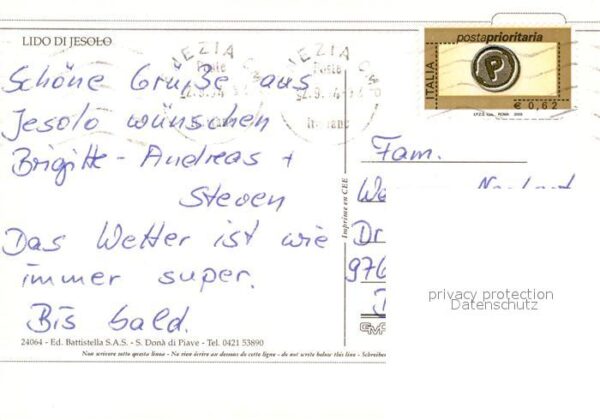 LIDO DI JESOLO
postaprioritaria
ITALIA
P
€ 0,62
Poste
Schöne Grüße aus
Jesolo wünschen
Brigitte - Andreas +
Steven
Das Wetter ist wie
immer super.
Bis bald.
Imprime en CEE
Fam.
We
Dr
976
D
privacy protection
Datenschutz
24064 - Ed. Battistella S.A.S. - S. Donà di Piave - Tel. 0421 53890
Non scrivere sotto questa linea - Ne rien écrire au dessous de cette ligne - do not write below this line - Schreiben